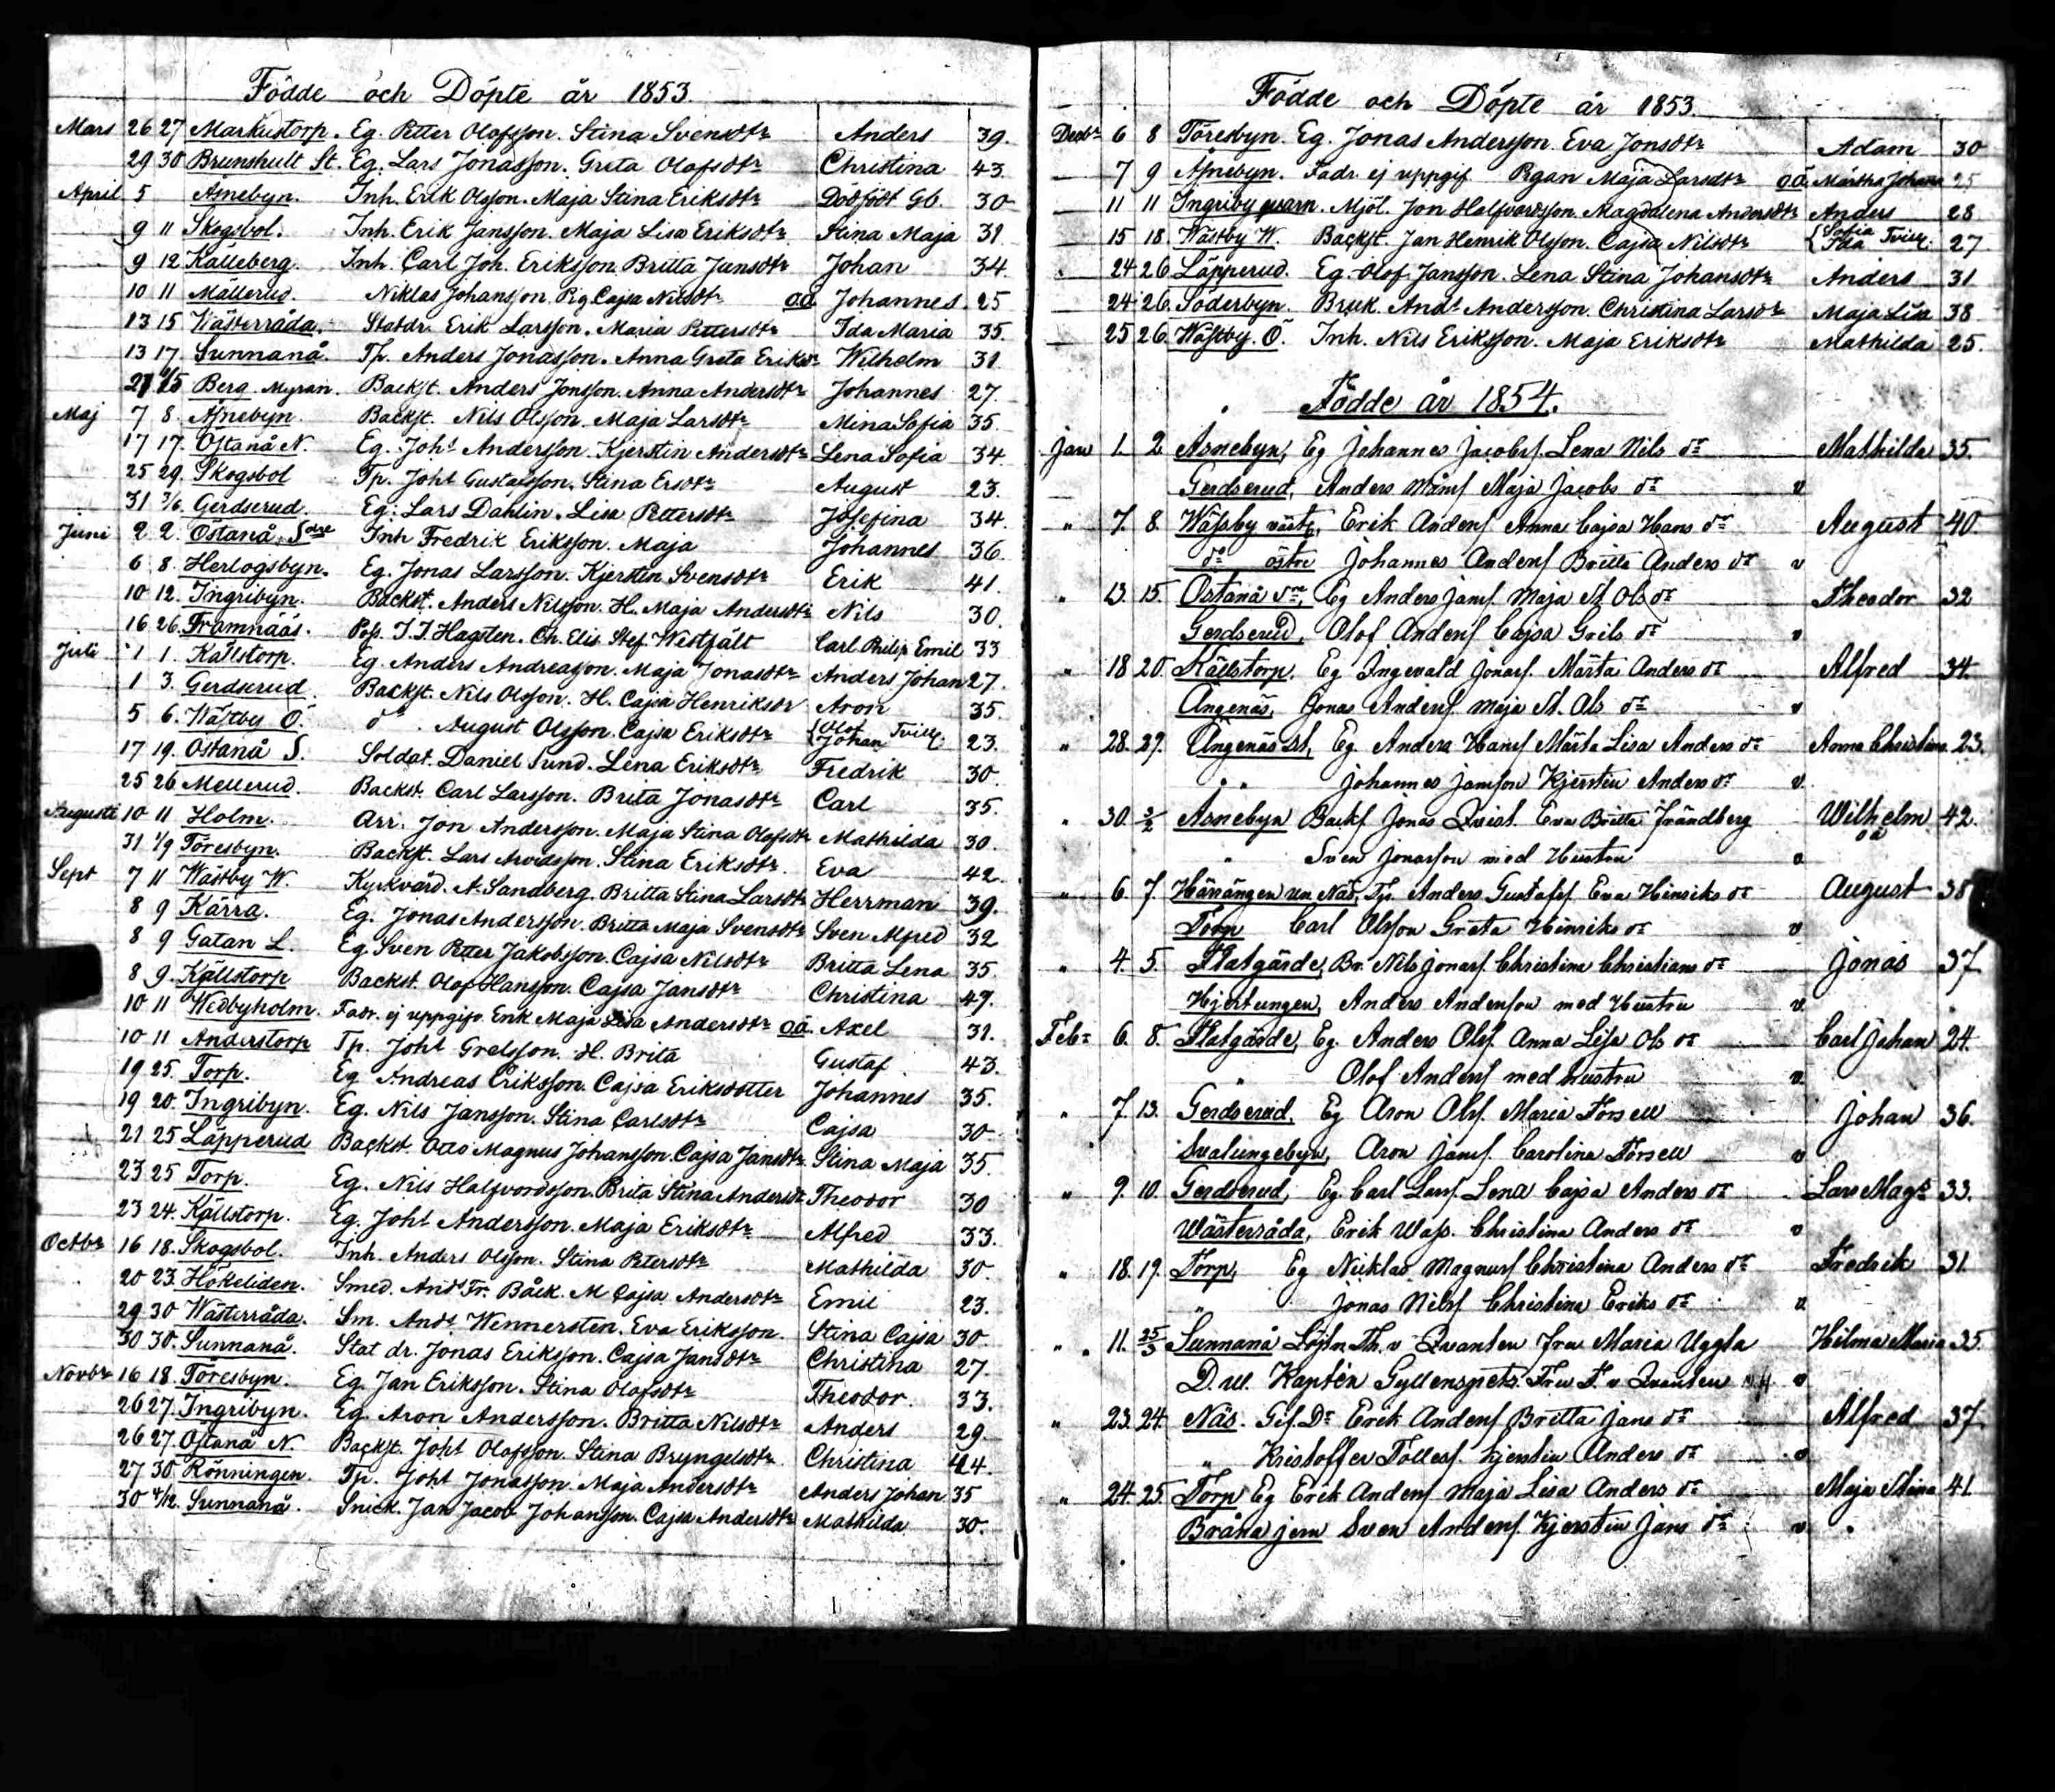 Födde och Döpte år 1853.
Mars 26 27 Markustorp. Eg. Petter Olofsson. Stina Svensdtr Anders 39.
29 30 Brunshult St. Eg. Lars Jonasson. Greta Olofsdtr Christina 43
April 5 Åsnebyn. Inh. Erik Olsson. Maja Stina Eriksdtr Dödfödt Gb. 30
9 11 Skogsbol. Inh. Erik Jansson. Maja Lisa Eriksdtr Stina Maja 31
9 12 Källeberg. Inh. Carl Joh. Eriksson Britta Junsdtr Johan 34.
10 11 Mällerud. Niklas Johansson. Pig Cajsa Nilsdtr oä Johannes. 25
13 15 Wästerråda. Statdr. Erik Larsson. Maria Pettersdtr Ida Maria 35.
13 17. Sunnanå. Tp. Anders Jonasson. Anna Greta Eriksdr Wilhelm 31.
Berg Myran. Backst. Anders Jonsson. Anna Andersdtr Johannes 27.
Maj 7 8. Åsnebyn. Backst. Nils Olsson. Maja Larsdtr Mina Sofia 35.
17 17. Östanå N. Eg. Johs Andersson. Kjerstin Andersdtr Lena Sofia 34.
25 29. Skogsbol Tp. Johs Gustafsson. Stina Ersdtr August 23.
31 3/6. Gerdserud. Eg. Lars Dahlin. Lisa Pettersdtr Josefina 34.
Juni 2 2. Östanå Sdre Inh Fredrik Eriksson. Maja Johannes 36.
6 8. Hertogsbyn. Eg. Jonas Larsson. Kjerstin Svensdtr Erik 41.
10 12. Ingribyn. Backst. Anders Nilsson. H. Maja Andersdtr Nils 30.
16 26. Framnääs. Poss. J. J. Hagsten. Ch. Elis. Stef. Westfält Carl Philip Emil 33
Juli 1 1. Källstorp. Eg. Anders Andreasson. Maja Jonasdtr Anders Johan 27.
1 3. Gerdserud. Backst. Nils Olsson. H. Cajsa Henriksdr Aron 35.
5 6. Wästby Ö. do. August Olsson. Cajsa Eriksdtr {Olof Johan Tvill. 23.
17 19. Östanå S. Soldat. Daniel Sund. Lena Eriksdtr Fredrik 30.
25 26 Mellerud. Backst. Carl Larsson. Brita Jonasdtr Carl 35.
Augusti 10 11 Holm. Arr. Jon Andersson. Maja Stina Olofsdtr Mathilda 30.
31 1/9 Töresbyn. Backst. Lars Arvidsson. Stina Eriksdtr. Eva 42.
Sept 7 11 Wästby W. Kyrkvärd. A. Sandberg. Britta Stina Larsdtr Herrman 39.
8 9 Kärra. Eg. Jonas Andersson. Britta Maja Svensdtr Sven Alfred 32
8 9 Gatan L. Eg. Sven Petter Jakobsson. Cajsa Nilsdtr Britta Lena 35.
8 9. Källstorp Backst. Olof Hansson. Cajsa Jansdtr Christina 47.
10 11 Wedbyholm. Fadr. ej uppgifv. Enk Maja Lisa Andersdtr oä. Axel 31.
10 11 Anderstorp Tp. Johs Grelsson. H. Brita Gustaf 43.
19 25. Torp. Eg Andreas Eriksson. Cajsa Eriksdotter Johannes 35.
19 20. Ingribyn. Eg. Nils Jansson. Stina Carlsdtr Cajsa 30
21 25 Läpperud Backst. Otto Magnus Johansson. Cajsa Jansdtr Stina Maja 35.
23 25 Torp. Eg. Nils Halfvordsson. Brita Stina Andersdt Theodor 30
23 24. Källstorp. Eg. Johs Andersson. Maja Eriksdtr Alfred 33.
Octbr 16 18. Skogsbol. Inh. Anders Olsson. Stina Petersdtr Mathilda 30.
20 23. Hökeliden. Smed. Ands Fr. Bäck. M Cajsa Andersdtr Emil 23.
29 30 Wästerråda. Sm. Ands Wennersten. Eva Eriksson. Stina Cajsa 30.
30 30. Sunnanå. Stat dr. Jonas Eriksson. Cajsa Jansdtr Christina 27.
Novbr 16 18. Töresbyn. Eg. Jan Eriksson. Stina Olofsdtr Theodor. 33.
26 27. Ingribyn. Eg. Aron Andersson. Britta Nilsdtr Anders 29.
26 27. Östanå N. Backst. Johs Olofsson. Stina Bryngelsdtr Christina 44.
27 30. Rönningen. Tp. Johs Jonasson. Maja Andersdtr Anders Johan 35
30 4/12. Sunnanå. Snick. Jan Jacob Johansson. Cajsa Andersdtr Mathilda 30.
Födde och Döpte år 1853.
Decbr 6 8 Töresbyn. Eg. Jonas Andersson. Eva Jonsdtr Adam 30
7 9 Åsnebyn. Fadr. ej uppgif. Pigan Maja Larsdtr oä. Märtha Johana 25
11 11 Ingriby qvarn. Mjöl. Jon Halfvordsson. Magdalena Andersdtr Anders 28
15 18. Wästby W. Backst. Jan Henrik Olsson. Cajsa Nilsdtr {Sofia Ida Tvill. 27
24 26. Läpperud. Eg. Olof Jansson. Lena Stina Johansdtr Anders 31
24 26. Söderbyn. Bruk. Ands Andersson. Christina Larsdr Maja Lisa 38
25 26. Wästby. Ö. Inh. Nils Eriksson. Maja Eriksdtr Mathilda 25.
Födde år 1854.
Jan 1. 2 Åsnebyn, Eg Johannes Jacobss. Lena Nils dr Mathilda 35.
Gerdserud, Anders Månss Maja Jacobs dr v
" 7. 8. Wässby västr, Erik Anderss Anna Cajsa Hans dr August 40.
do östra Johannes Anderss Britta Anders dr v
" 13. 15. Östanå sra, Eg Anders Janss. Maja St. Ols dr Theodor 32
Gerdserud, Olof Anderss Cajsa Grils dr v
" 18 20. Källstorp. Eg Ingevald Jonass. Märta Anders dr Alfred 34.
Ängenäs, Jonas Anderss. Maja St. Ols dr v
" 28. 29. Ängenäs St, Eg Anders Hanss Märta Lisa Anders dr Anna Christina 23.
" Johannes Jansson Kjerstin Anders dr v
" 30. 2/2 Åsnebyn Backs Jonas Qvist. Eva Britta Strandberg Wilhelm oä 42.
" Sven Jonasson med Hustru v
" 6. 7. Näs, Tp. Anders Gustafss Eva Hinriks dr August 38
Torp Carl Olsson Greta Hinriks dr v
" 4. 5. Flatgärde, Br. Nils Jonass. Christina Christians dr Jonas 37
Hjertungen, Anders Andersson med Hustru v
Febr 6. 8. Flatgärde, Eg. Anders Olss. Anna Lisa Ols dr Carl Johan 24.
" Olof Anderss med hustru v
" 7. 13. Gerdserud, Eg Aron Olss. Maria Forsell Johan 36.
Svalungebyn, Aron Janss. Carolina Forsell v
" 9. 10. Gerdserud, Eg. Carl Larss. Lena Cajsa Anders dr Lars Mags 33.
Wästerråda, Erik Wass. Christina Anders dr v
" 18. 19. Torp, Eg Nicklas Magnuss Christina Anders dr Fredrik 31.
" Jonas Nilss Christina Eriks dr v
" 11. 25/3 Sunnanå Löjtn Th. v Qvanten fru Maria Uggla Hilma Maria 35.
D. ul. Kapten Gyllenspetz Fru F. v Qvanten v
" 23. 24. Näs. Gif. Dr Erik Anderss Britta Jans dr Alfred 37
" Kristoffer Tolless. Kjerstin Anders dr v
" 24. 25. Torp Eg Erik Anderss Maja Lisa Anders dr Maja Stina 41.
Bråna jem Sven Anderss. Kjerstin Jans dr v